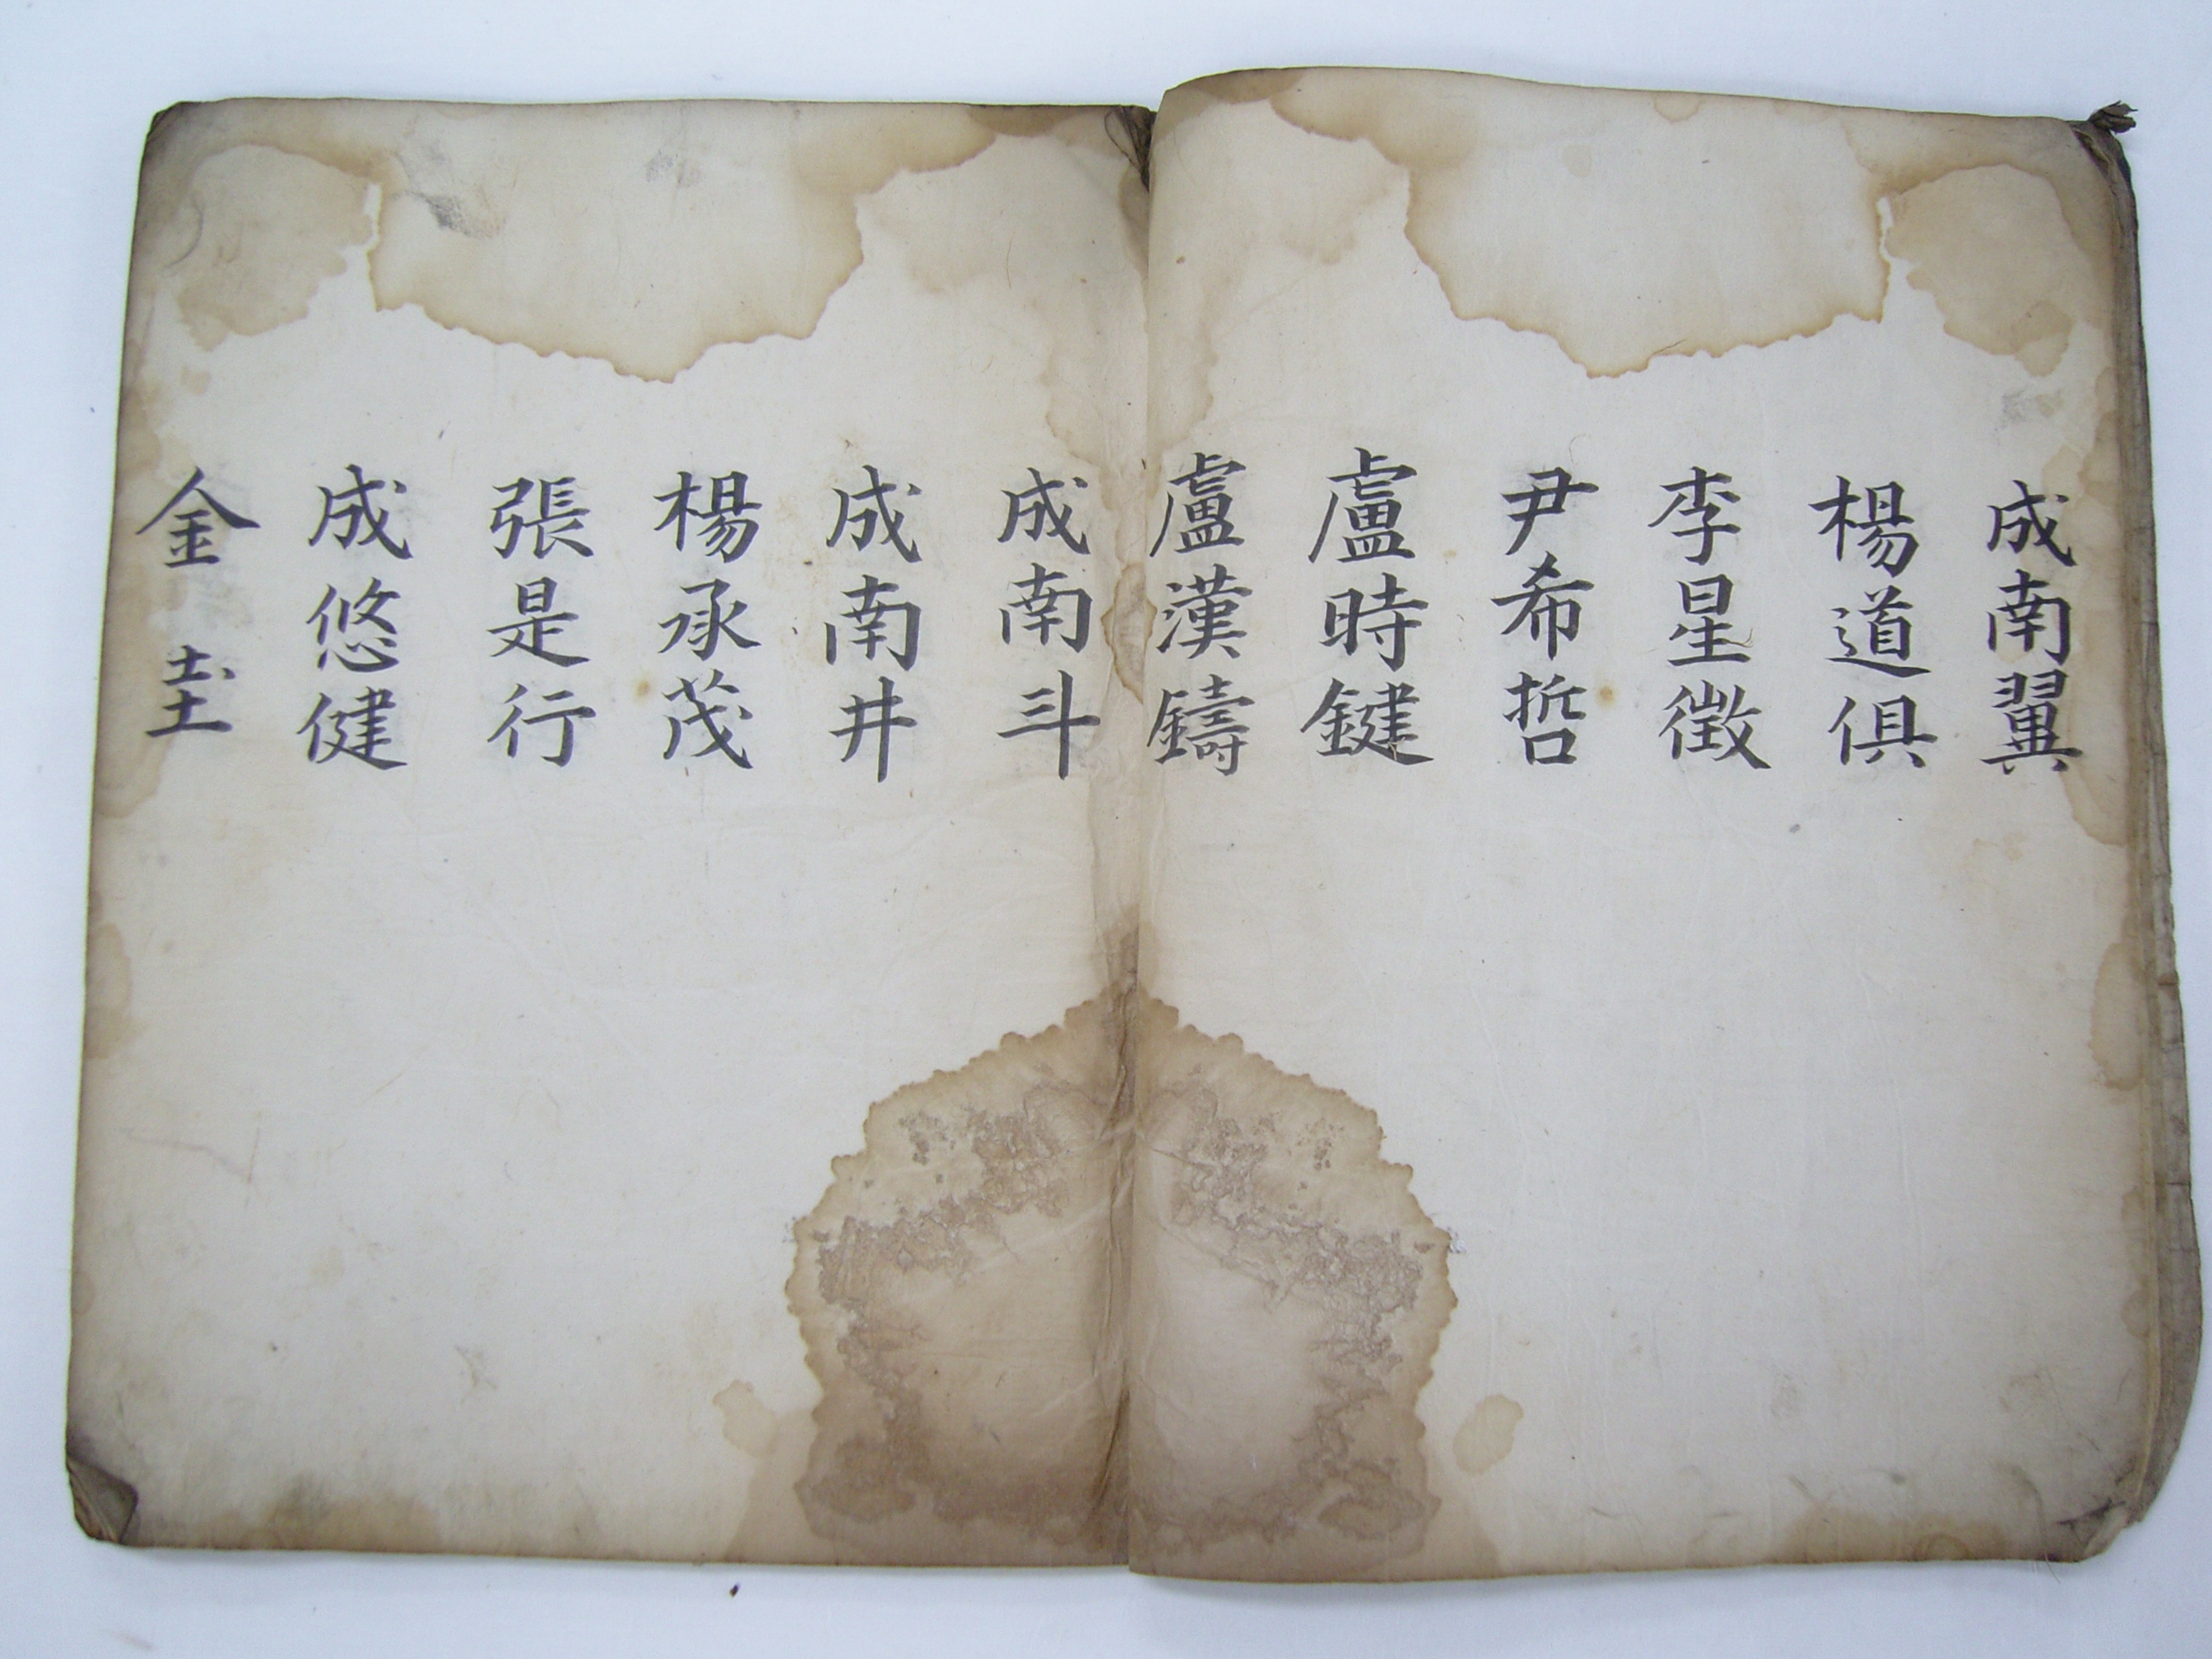 成南翼
楊道俱
李星徵
尹希哲
盧時鍵
盧漢鑄
成南斗
成南井
楊承茂
張是行
成悠健
金